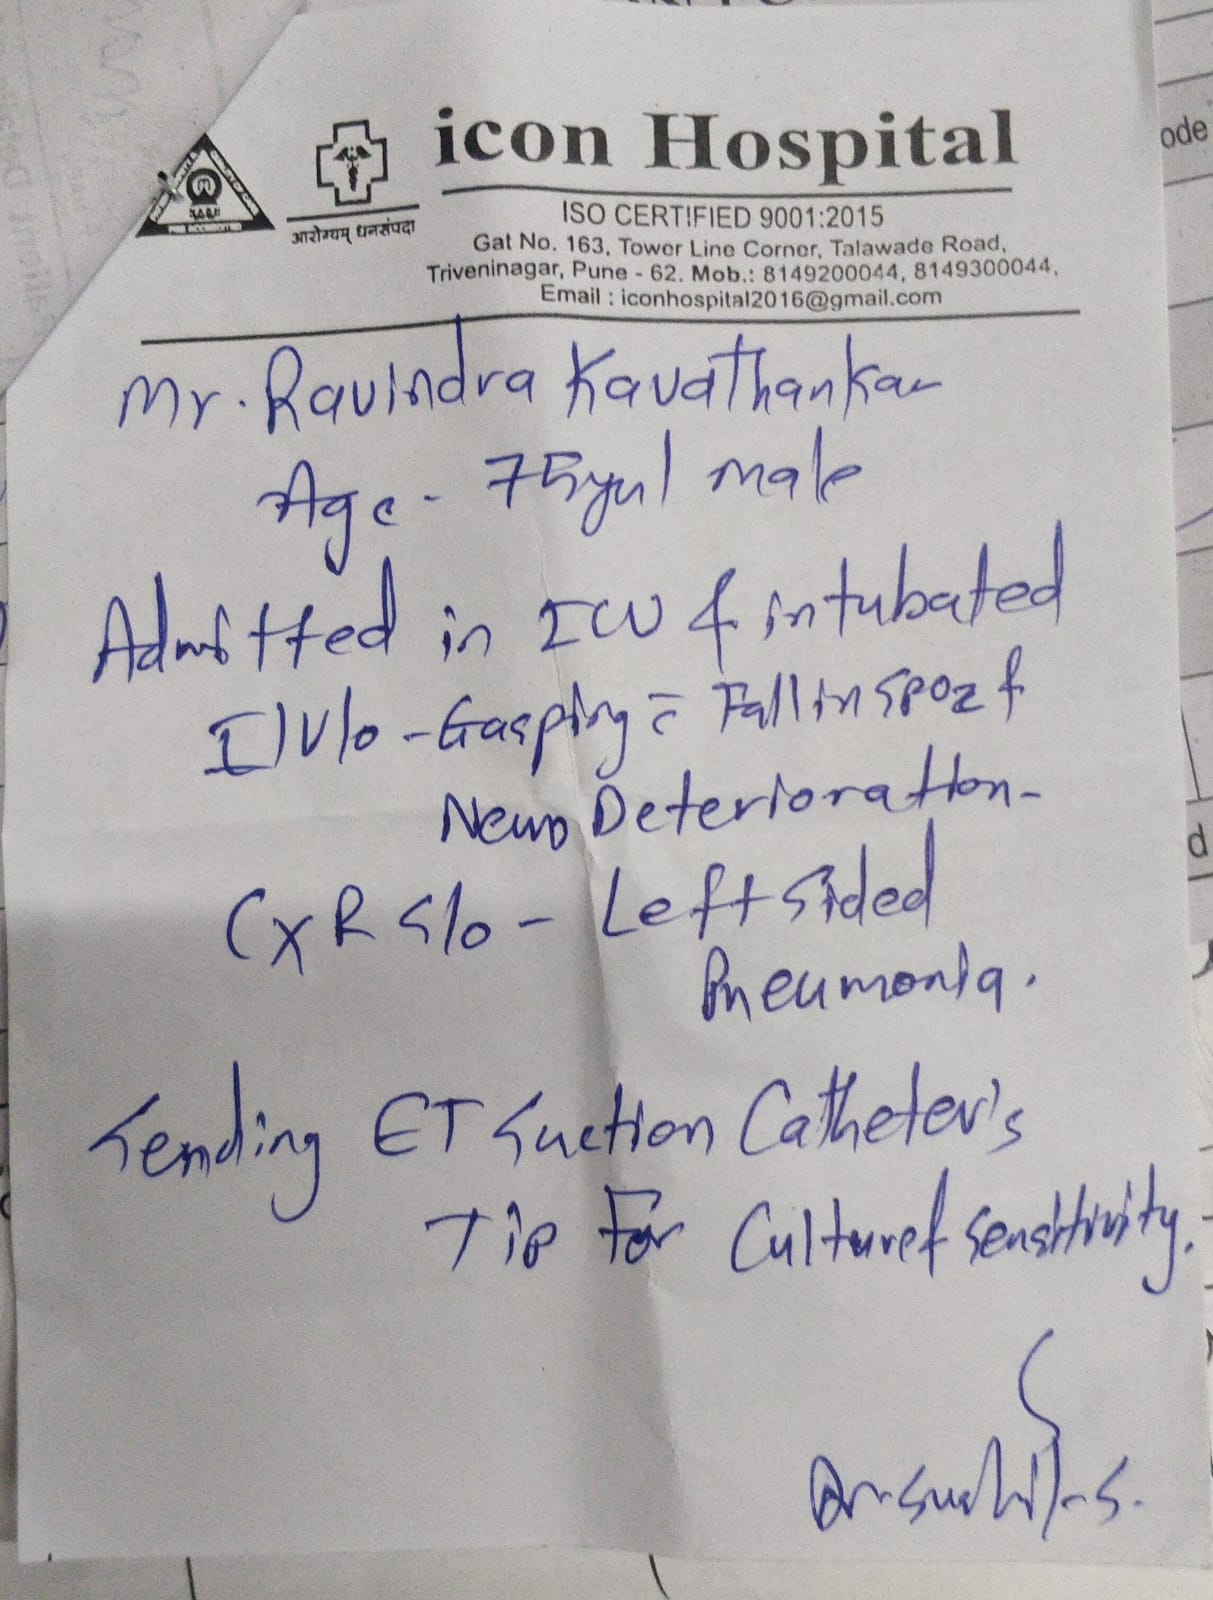 icon Hospital
आरोग्यम् धनसंपदा
ISO CERTIFIED 9001:2015
Gat No. 163, Tower Line Corner, Talawade Road,
Triveninagar, Pune - 62. Mob.: 8149200044, 8149300044,
Email : iconhospital2016@gmail.com
Mr. Ravindra Kavathankar
Age - 75yrs/ male
Admitted in ICU & intubated
I/V/o - Gasping c̄ Fall in SPO2 &
Neuro Deterioration -
CXR S/o - Left sided
Pneumonia.
Sending ET Suction Catheter's
Tip For Culture & sensitivity.
Dr. Sushil S.
ode
d